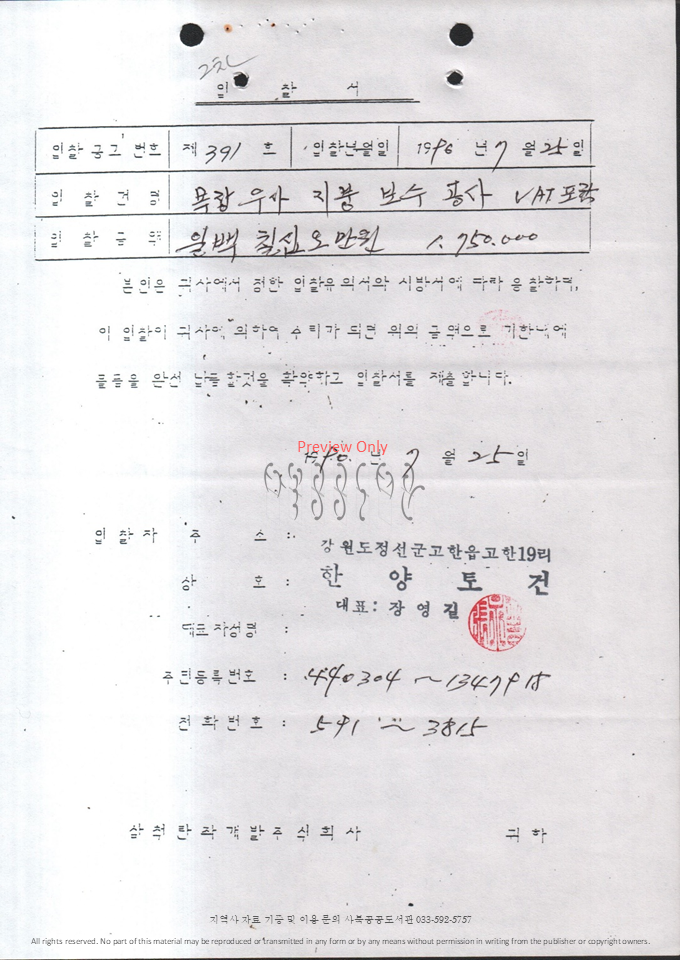 2차
입 찰 서
입찰공고 번호 제 391 호 입찰년월일 1996 년 7 월 25 일
입 찰 건 명 목람 우사 지붕 보수 공사 VAT 포함
입 찰 금 액 일백 칠십 오만원 1.750.000
본인은 귀사에서 정한 입찰유의서와 시방서에 따라 응찰하며,
이 입찰이 귀사에 의하여 수락가 되면 위의 금액으로 기한내에
물품을 완전 납품할것을 확약하고 입찰서를 제출합니다.
Preview Only
1990. 년 7 월 25 일
입 찰 자 주 소 : 강원도정선군고한읍고한19리
상 호 : 한 양 토 건
대표 : 장 영 길
대표자성명 :
주민등록번호 : 440304 ~ 1347918
전 화 번 호 : 591 ~ 3815
삼척탄좌개발주식회사 귀하
지역사 자료 기증 및 이용 문의 사북공공도서관 033-592-5757
All rights reserved. No part of this material may be reproduced or transmitted in any form or by any means without permission in writing from the publisher or copyright owners.